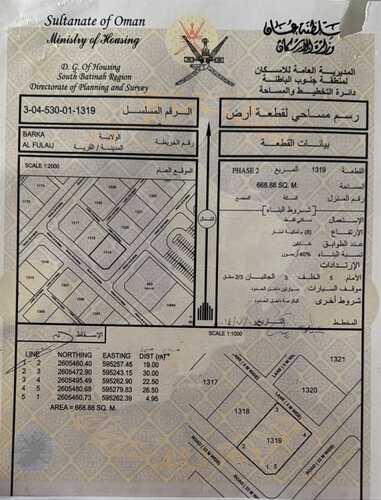 Sultanate of Oman
Ministry of Housing
سلطنة عمان
وزارة الإسكان
D. G. Of Housing
South Batinah Region
Directorate of Planning and Survey
المديرية العامة للاسكان
لمنطقة جنوب الباطنة
دائرة التخطيط و المساحة
3-04-530-01-1319
الرقم المسلسل
رسم مساحي لقطعة أرض
BARKA
AL FULAIJ
الولاية
المدينة / القرية
رقم الخريطة
بيانات القطعة
SCALE 1:2000
الموقع العام
القطعة
1319
المربع
PHASE 2
المساحة
668.88 SQ. M.
رقم المنزل
شروط البناء
الإستعمال
الإرتفاع
عدد الطوابق
نسبة البناء
40%
الإرتدادات
الأمام
5
الخلف
3
الجانبان
2/3
موقف السيارات
شروط أخرى
المخطط
التاريخ
الإسقاط
SCALE 1:1000
LINE NORTHING EASTING DIST (m)
1 2 2605460.40 595257.45 19.00
2 3 2605472.90 595243.15 30.00
3 4 2605495.49 595262.90 22.50
4 5 2605480.68 595279.83 26.50
5 1 2605460.73 595262.39 4.95
AREA = 668.88 SQ. M.
1321
1320
1317
1318
1319